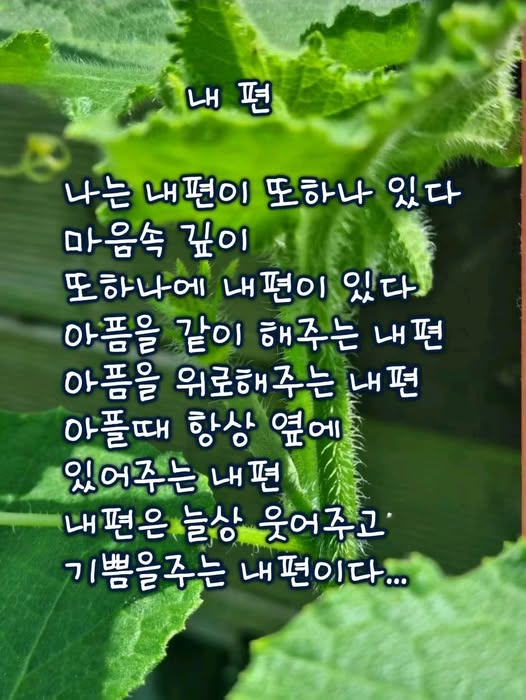 내 편
나는 내편이 또하나 있다
마음속 깊이
또하나에 내편이 있다
아픔을 같이 해주는 내편
아픔을 위로해주는 내편
아플때 항상 옆에
있어주는 내편
내편은 늘상 웃어주고
기쁨을주는 내편이다...